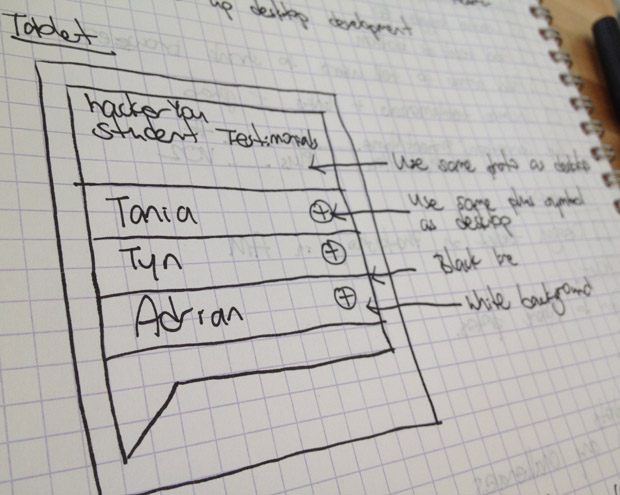 up desktop development
Tablet
hackerYou
Student Testimonials
Use same photo as desktop
Tania
Use same plus symbol
as desktop
Tyn
Black line
Adrian
White background